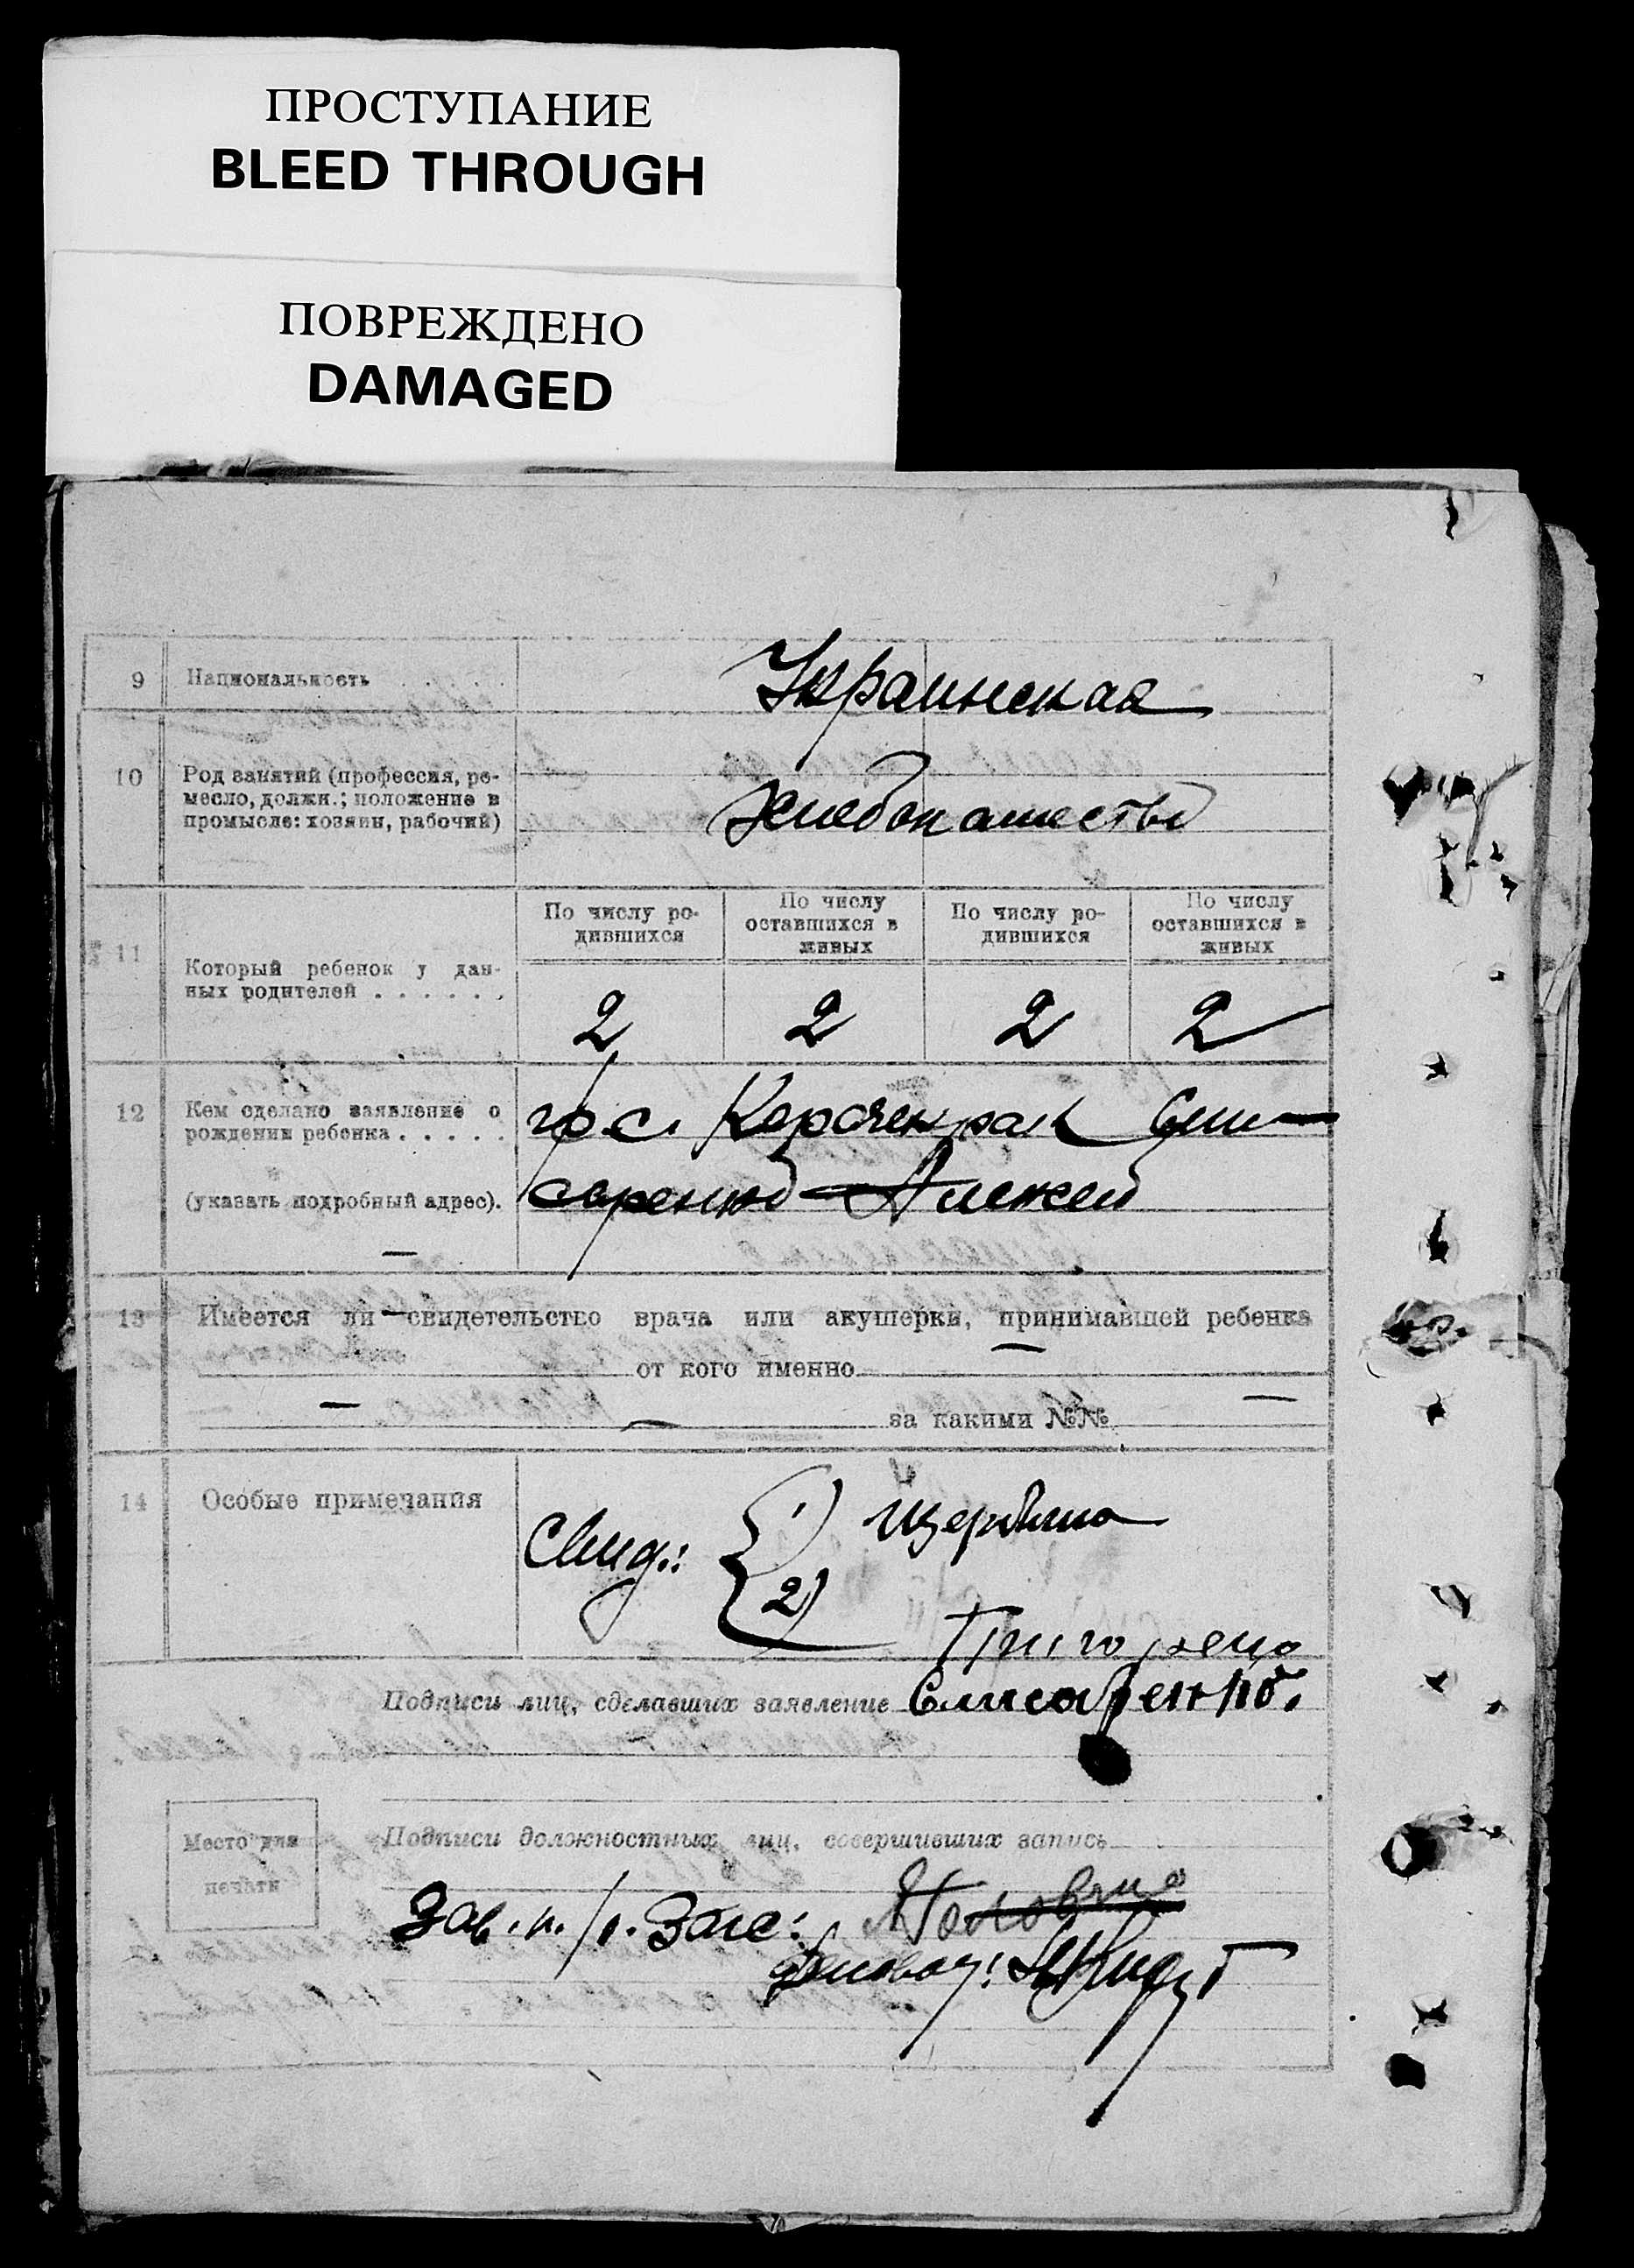 ПРОСТУПАНИЕ
BLEED THROUGH
ПОВРЕЖДЕНО
DAMAGED
9 Национальность Украинская
10 Род занятий (профессия, ре-
месло, должн.; положение в
промысле: хозяин, рабочий)
Хлебопашество
11 Который ребенок у дан-
ных родителей
По числу ро-
дившихся
По числу
оставшихся в
живых
По числу ро-
дившихся
По числу
оставшихся в
живых
2 2 2 2
12 Кем сделано заявление о
рождении ребенка
(указать подробный адрес).
гр. с. Ели-
саренко Алексей
13 Имеется ли свидетельство врача или акушерки, принимавшей ребенка
от кого именно
за какими №№
14 Особые примечания
Свид.: 1) Щербина
2)
Подписи лиц, сделавших заявление Елисаренко.
Место для
печати
Подписи должностных лиц, совершивших запись
Зав. п/п. Загс: